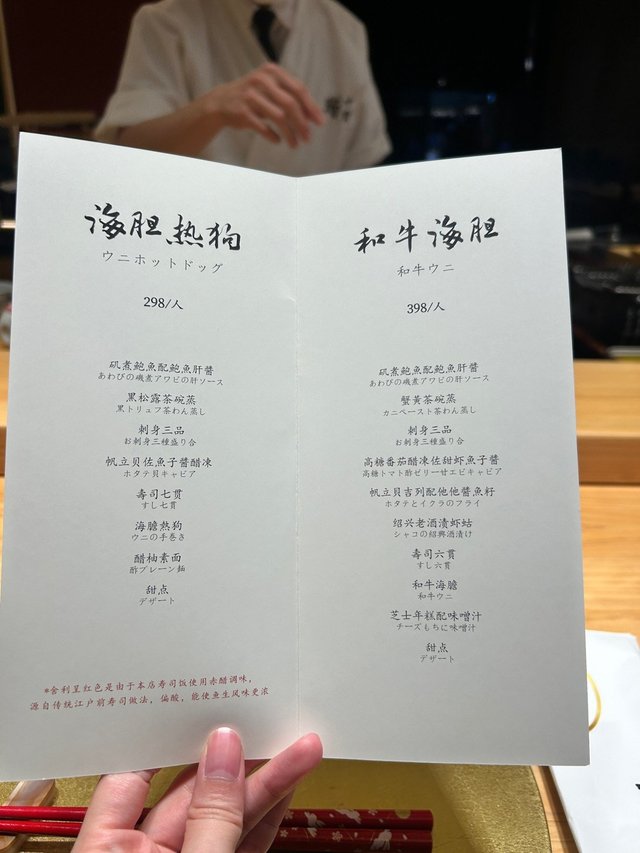 海胆热狗
ウニホットドッグ
298/人
矶煮鲍魚配鲍魚肝醬
あわびの磯煮アワビの肝ソース
黑松露茶碗蒸
黒トリュフ茶わん蒸し
刺身三品
お刺身三種盛り合
帆立贝佐魚子醬醋凍
ホタテ貝キャビア
壽司七贯
すし七貫
海膽熱狗
ウニの手巻き
醋柚素面
酢プレーン麺
甜点
デザート
*舍利呈红色是由于本店寿司饭使用赤醋调味，
源自传统江户前寿司做法，偏酸，能使鱼生风味更浓
和牛海胆
和牛ウニ
398/人
矶煮鲍魚配鲍魚肝醬
あわびの磯煮アワビの肝ソース
蟹黃茶碗蒸
カニペースト茶わん蒸し
刺身三品
お刺身三種盛り合
高糖番茄醋凍佐甜虾魚子醬
高糖トマト酢ゼリー甘エビキャビア
帆立贝吉列配他他醬魚籽
ホタテとイクラのフライ
绍兴老酒漬虾蛄
シャコの紹興酒漬け
壽司六贯
すし六貫
和牛海膽
和牛ウニ
芝士年糕配味噌汁
チーズもちに味噌汁
甜点
デザート